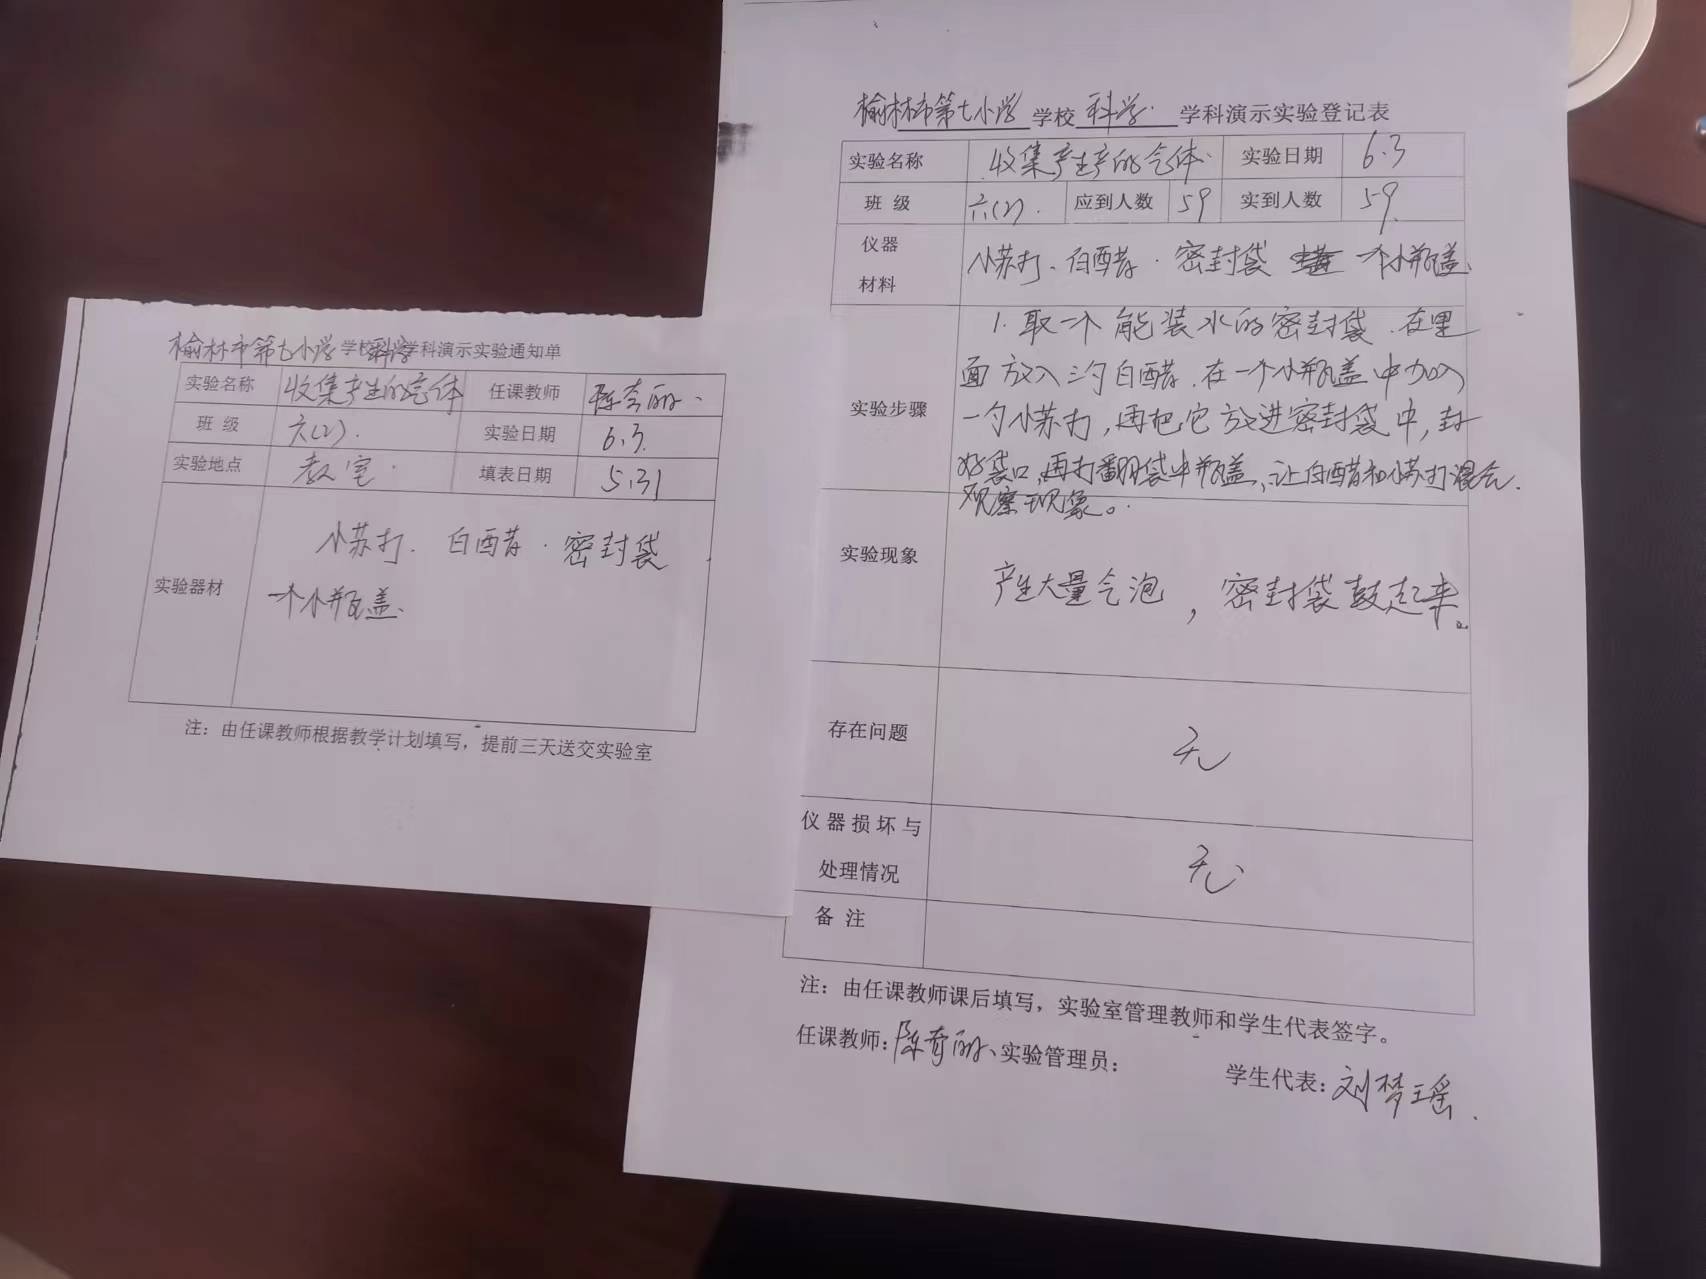 榆林市第七小学 学校 科学 学科演示实验通知单
实验名称 收集产生的气体 任课教师 陈奇丽
班 级 六(2). 实验日期 6.3
实验地点 教室 填表日期 5.31
实验器材 小苏打、白醋、密封袋
一个小瓶盖
注：由任课教师根据教学计划填写，提前三天送交实验室
榆林市第七小学 学校 科学 学科演示实验登记表
实验名称 收集产生的气体 实验日期 6.3
班 级 六(2). 应到人数 59 实到人数 59
仪器
材料
小苏打、白醋、密封袋 一个小瓶盖
实验步骤
1. 取一个能装水的密封袋.在里
面放入三勺白醋.在一个小瓶盖中加入
一勺小苏打,再把它放进密封袋中,封
好袋口,再打翻袋中瓶盖,让白醋和小苏打混合.
观察现象。
实验现象 产生大量气泡，密封袋鼓起来。
存在问题 无
仪器损坏与
处理情况
无
备 注
注：由任课教师课后填写，实验室管理教师和学生代表签字。
任课教师：陈奇丽、实验管理员： 学生代表：刘梦瑶.